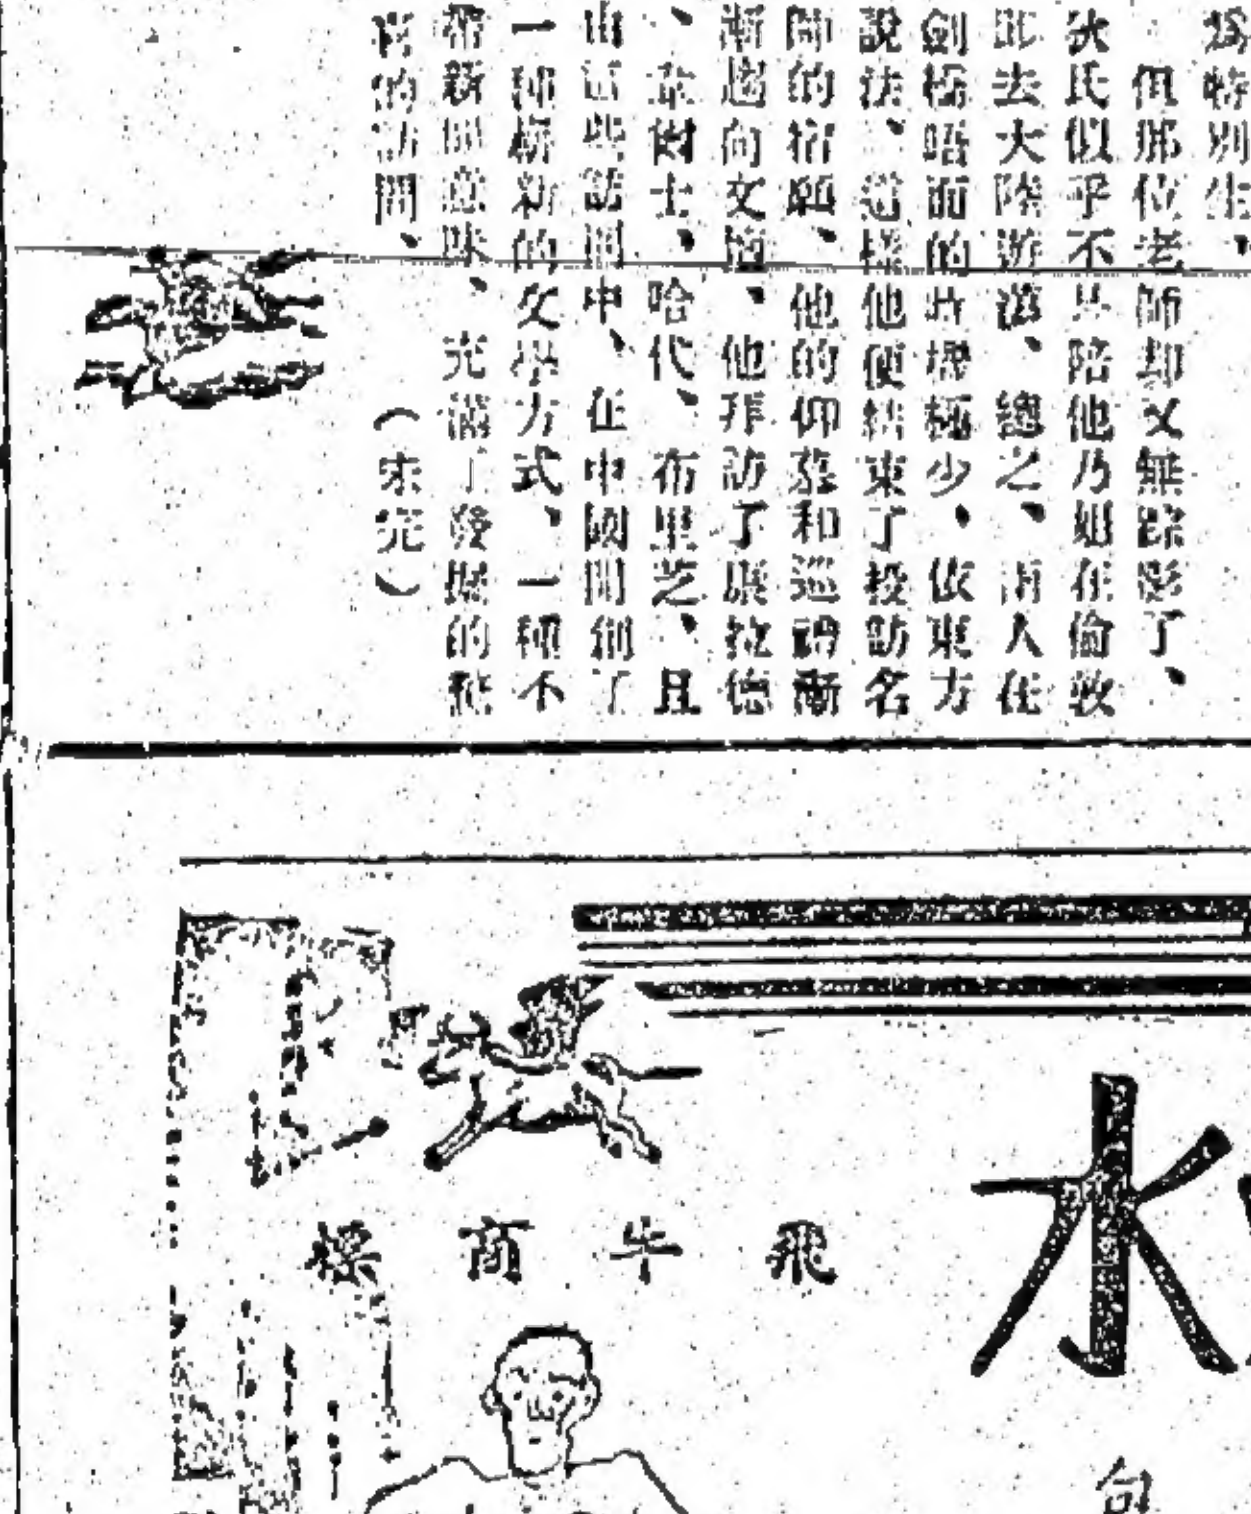 爲特別生、
但那位老師却又無踪影了、
狄氏似乎不只陪他乃姐在倫敦
此去大陸遊蕩、總之、兩人在
劍橋晤面的時機極少、依東方
說法、這樣他便結束了投訪名
師的宿願、他的仰慕和巡禮漸
漸趨向文壇、他拜訪了康拉德
、哈代、布里芝、且
由這些訪問中、在中國開創了
一種嶄新的文學方式、一種不
帶新聞意味、充滿了發掘的
的訪問、 (未完)
飛牛商標
水